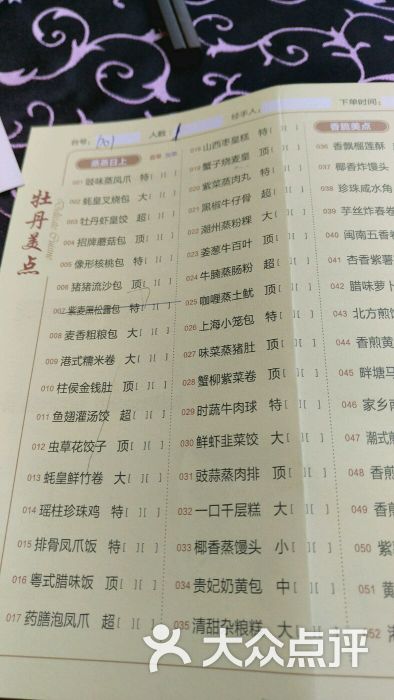 台号： 101 人数： 1 经手人： 下单时间：
牡丹美点
蒸蒸日上
001 豉味蒸凤爪 特[ ][ ]
002 蚝皇叉烧包 大[ ][ ]
003 牡丹虾皇饺 超[ ][ ]
004 招牌蘑菇包 顶[ ][ ]
005 像形核桃包 特[ ][ ]
006 猪猪流沙包 顶[ ][ ]
007 紫麦黑松露包 特[ ][ ]
008 麦香粗粮包 大[ ][ ]
009 港式糯米卷 大[ ][ ]
010 柱侯金钱肚 顶[ ][ ]
011 鱼翅灌汤饺 超[ ][ ]
012 虫草花饺子 顶[ ][ ]
013 蚝皇鲜竹卷 大[ ][ ]
014 瑶柱珍珠鸡 特[ ][ ]
015 排骨凤爪饭 特[ ][ ]
016 粤式腊味饭 顶[ ][ ]
017 药膳泡凤爪 超[ ][ ]
018 山西枣皇糕 特[ ][ ]
019 蟹子烧麦皇 顶[ ][ ]
020 紫菜蒸肉丸 特[ ][ ]
021 黑椒牛仔骨 超[ ][ ]
022 潮州蒸粉粿 大[ ][ ]
023 姜葱牛百叶 顶[ ][ ]
024 牛腩蒸肠粉 超[ ][ ]
025 咖喱蒸土鱿 顶[ ][ ]
026 上海小笼包 特[ ][ ]
027 味菜蒸猪肚 顶[ ][ ]
028 蟹柳紫菜卷 顶[ ][ ]
029 时蔬牛肉球 特[ ][ ]
030 鲜虾韭菜饺 大[ ][ ]
031 豉蒜蒸肉排 顶[ ][ ]
032 一口千层糕 大[ ][ ]
033 椰香蒸馒头 小[ ][ ]
034 贵妃奶黄包 中[ ][ ]
035 清甜杂粮糕 大[ ][ ]
香煎美点
036 香飘榴莲酥
037 椰香炸馒头
038 珍珠咸水角
039 芋丝炸春卷
040 闽南五香卷
041 杏香紫薯
042 腊味萝卜
043 北方煎饺
044 香煎黄
045 畔塘马
046 家乡
047 潮式
048 香煎
049 香煎
050 紫
051 黄
052 酥
大众点评